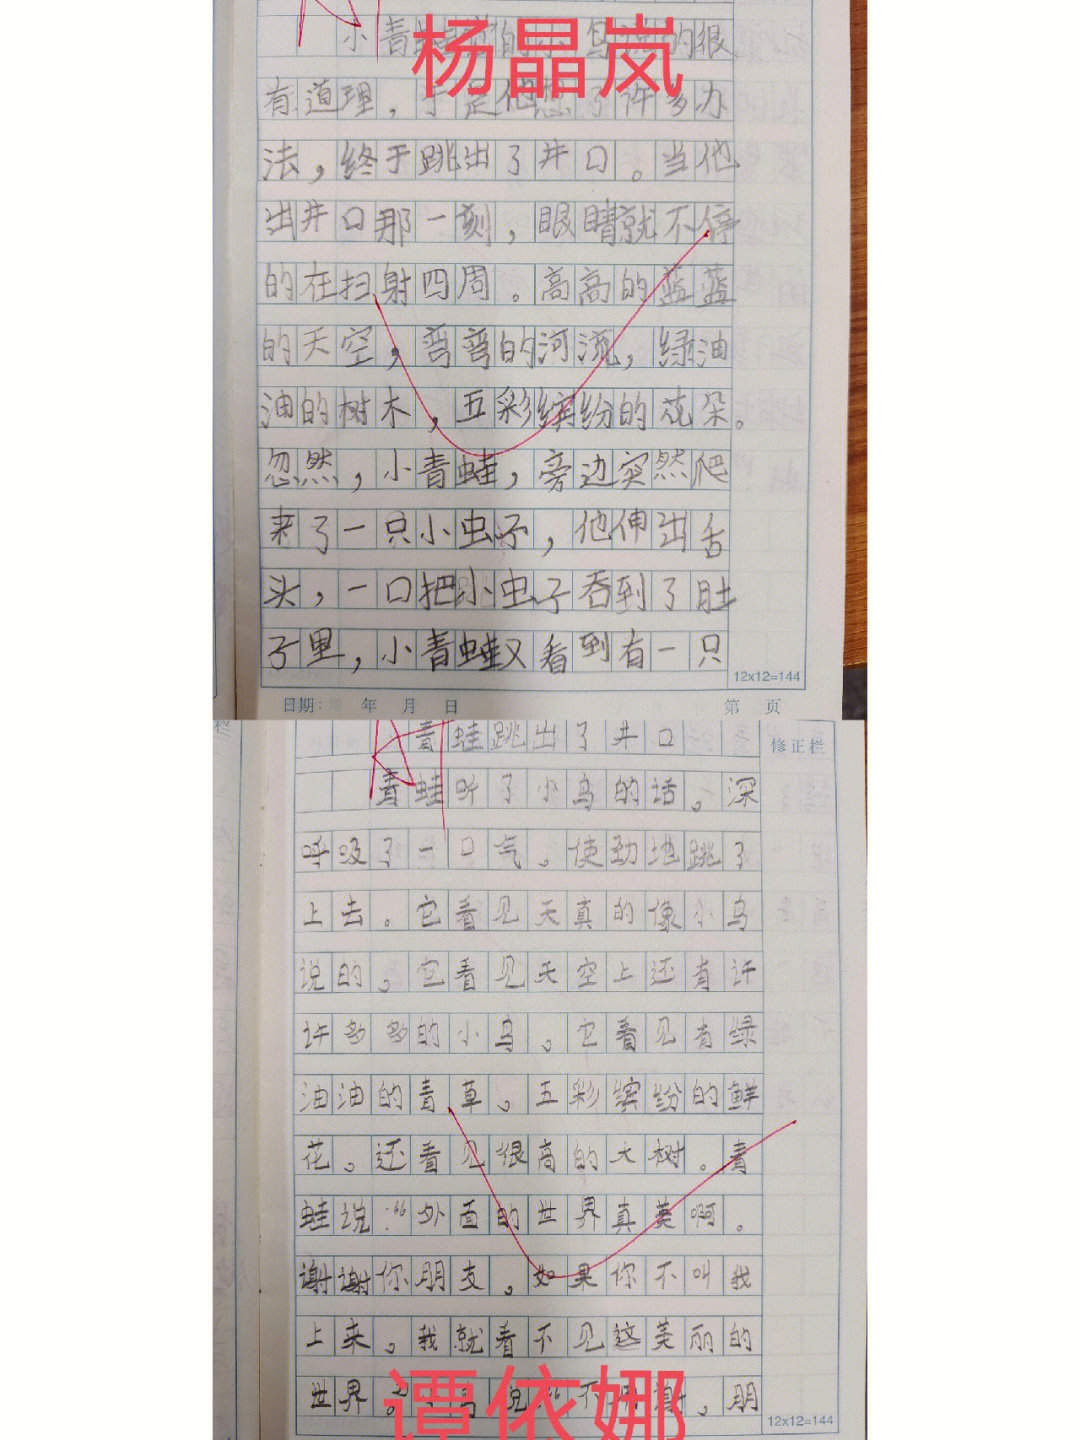 杨晶岚
小青蛙的小鸟说的很
有道理，于是他想了许多办
法，终于跳出了井口。当他
出井口那一刻，眼睛就不停
的在扫射四周。高高的蓝蓝
的天空，弯弯的河流，绿油
油的树木，五彩缤纷的花朵。
忽然，小青蛙，旁边突然爬
来了一只小虫子，他伸出舌
头，一口把小虫子吞到了肚
子里，小青蛙又看到有一只
12x12=144
日期： 年 月 日 第 页
青蛙跳出了井口
修正栏
青蛙听了小鸟的话。深
呼吸了一口气。使劲地跳了
上去。它看见天真的像小鸟
说的。它看见天空上还有许
许多多的小鸟。它看见有绿
油油的青草。五彩缤纷的鲜
花。还看见很高的大树。青
蛙说：“外面的世界真美啊。
谢谢你朋友。如果你不叫我
上来。我就看不见这美丽的
世界。”鸟说：“不用谢。朋
12x12=144
谭依娜